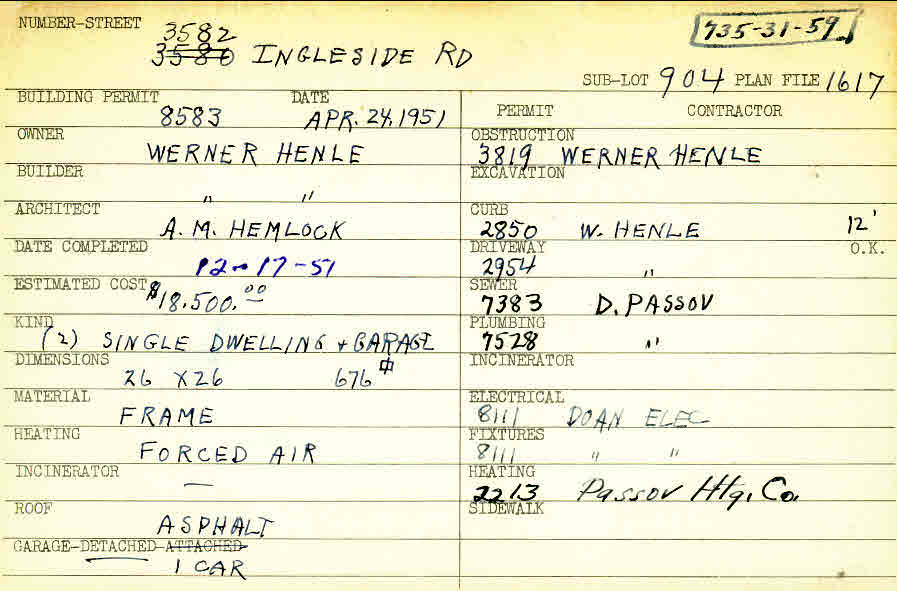 NUMBER-STREET 3582 735-31-59
3580 INGLESIDE RD
SUB-LOT 904 PLAN FILE 1617
BUILDING PERMIT DATE
8583 APR. 24, 1951
OWNER
WERNER HENLE
BUILDER
" "
ARCHITECT
A. M. HEMLOCK
DATE COMPLETED
12-17-51
ESTIMATED COST $18,500.00
KIND
(2) SINGLE DWELLING + GARAGE
DIMENSIONS
26 X 26 676
MATERIAL
FRAME
HEATING
FORCED AIR
INCINERATOR
—
ROOF
ASPHALT
GARAGE-DETACHED-ATTACHED
1 CAR
PERMIT CONTRACTOR
OBSTRUCTION
3819 WERNER HENLE
EXCAVATION
CURB
2850 W. HENLE 12'
DRIVEWAY O.K.
2954 "
SEWER
7383 D. PASSOV
PLUMBING
7528 "
INCINERATOR
ELECTRICAL
8111 DOAN ELEC
FIXTURES
8111 " "
HEATING
2213 Passov Htg. Co.
SIDEWALK